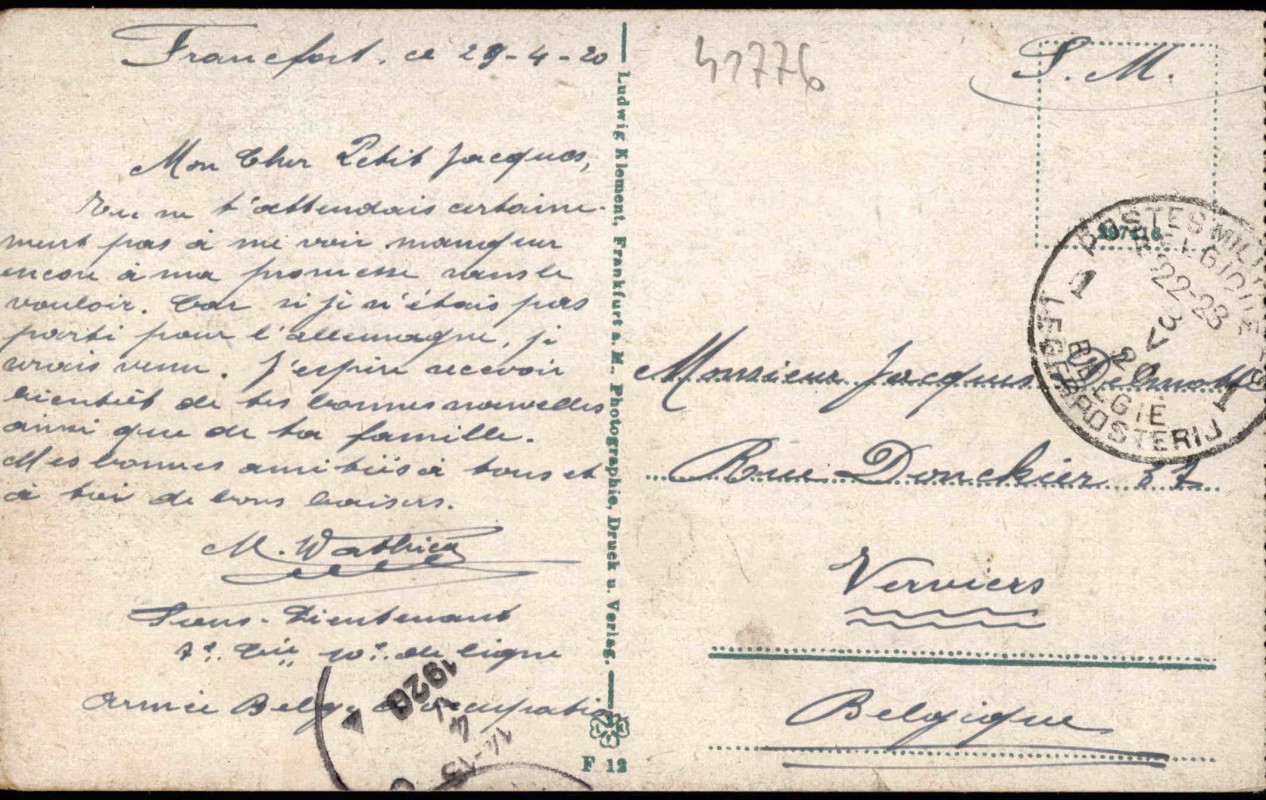 Francfort, ce 29-4-20
Mon Cher Petit Jacques,
Tu ne t'attendais certaine-
ment pas à me voir manquer
encore à ma promesse sans le
vouloir. Car si je n'étais pas
parti pour l'allemagne, je
serais venu. J'espère recevoir
bientôt de tes bonnes nouvelles
ainsi que de ta famille.
Mes bonnes amitiés à tous et
à toi de bons baisers.
M. Wathieu
Sous-Lieutenant
7e Cie 10e de ligne
Armée Belge d'occupation
Ludwig Klement, Frankfurt a. M., Photographie, Druck u. Verlag.
F 12
1920
41776
S. M.
POSTES MILIT
BELGIQUE
22-23
3
V
BELGIE
LEGERPOSTERIJ
1
1
Monsieur Jacques
Rue Donckier 37
Verviers
Belgique